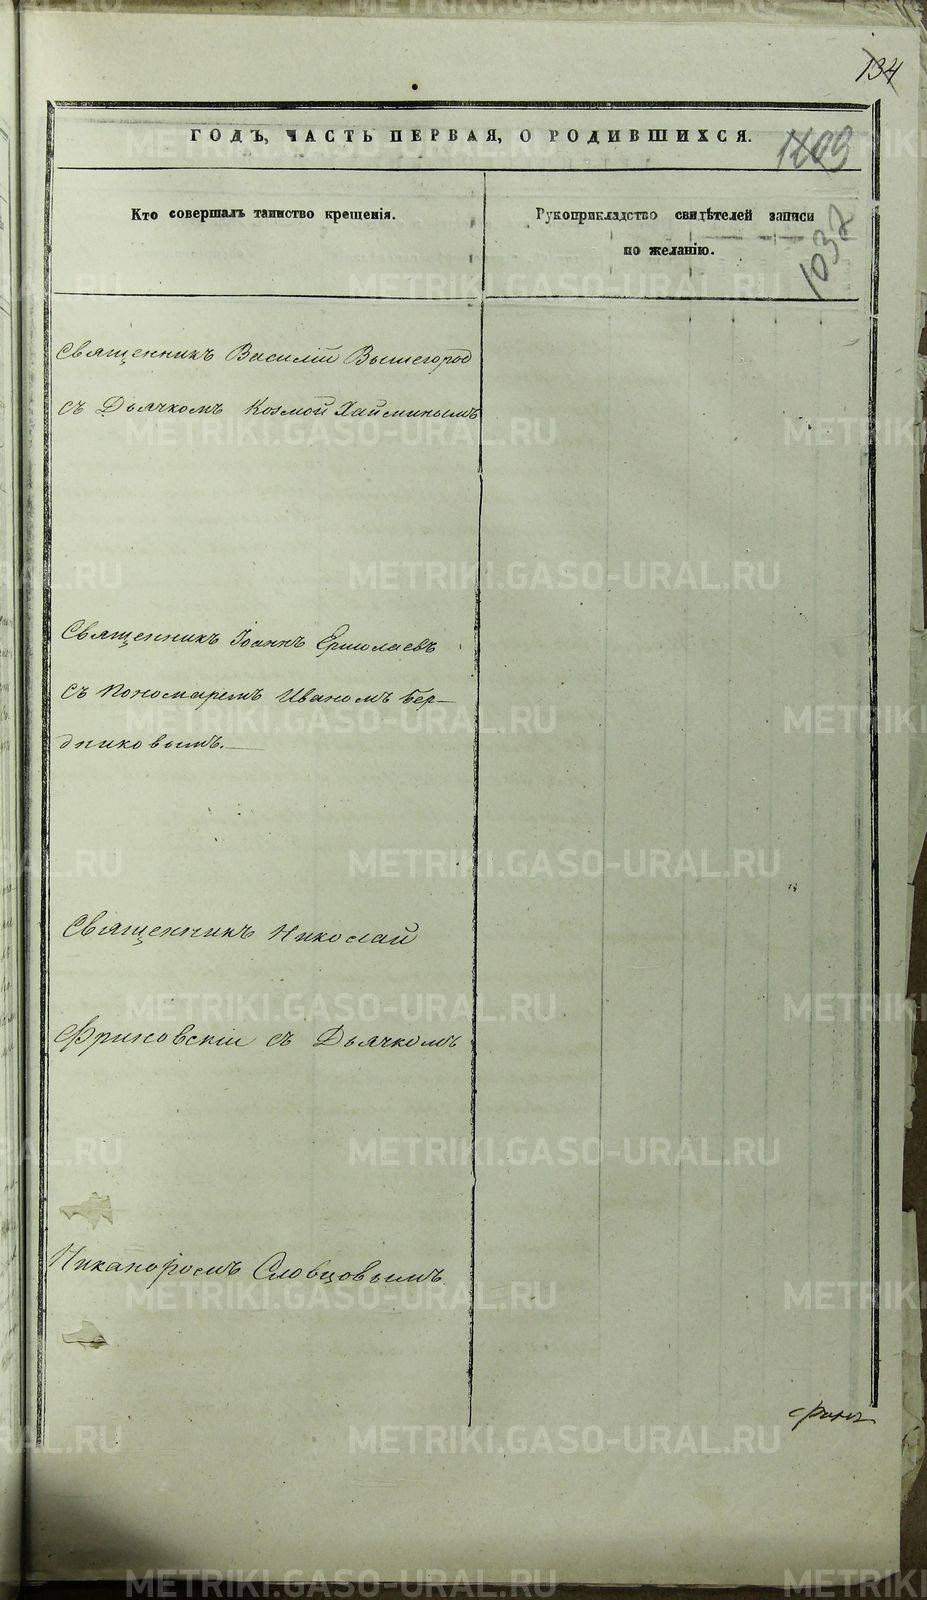 134
ГОДЪ, ЧАСТЬ ПЕРВАЯ, О РОДИВШИХСЯ.
1409
1037
Кто совершалъ таинство крещенія.
Рукоприкладство свидѣтелей записи
по желанію.
Священникъ Василій Вышегород
съ Дьячкомъ Козмой Хайминымъ
Священникъ Іоаннъ Ермолаевъ
съ пономаремъ Иваномъ Бер-
дниковымъ.
Священникъ Николай
Фриновскій съ Дьячкомъ
Никаноромъ Словцовымъ
METRIKI.GASO-URAL.RU